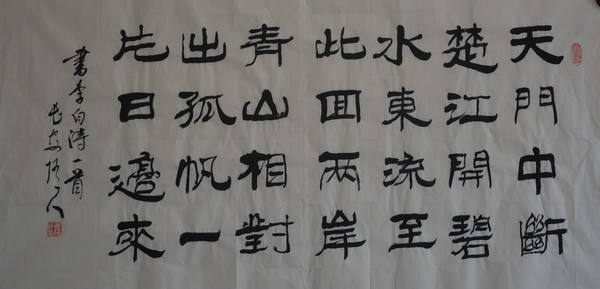 天門中斷
楚江開碧
水東流至
此回兩岸
青山相對
出孤帆一
片日邊來
書李白詩一首